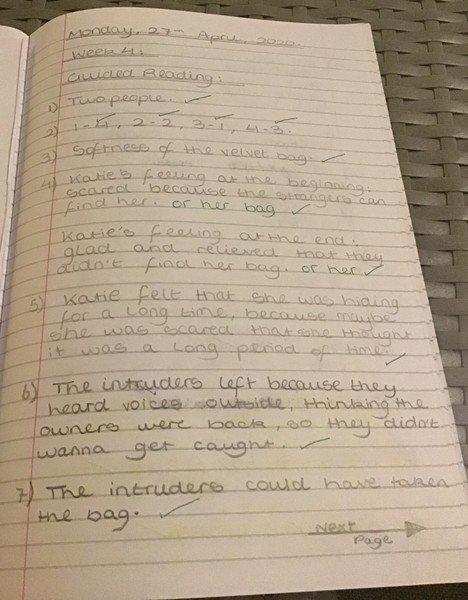 Monday, 27th April, 2020.
Week 4:
Guided Reading:
1) Two people.
2) 1-4, 2-2, 3-1, 4-3.
3) Softness of the velvet bag.
4) Katie's feeling at the beginning:
scared because the strangers can
find her. or her bag
Katie's feeling at the end:
glad and relieved that they
didn't find her bag. or her
5) Katie felt that she was hiding
for a long time, because maybe
she was scared that she thought
it was a long period of time.
6) The intruders left because they
heard voices outside, thinking the
owners were back, so they didn't
wanna get caught.
7) The intruders could have taken
the bag.
Next
Page